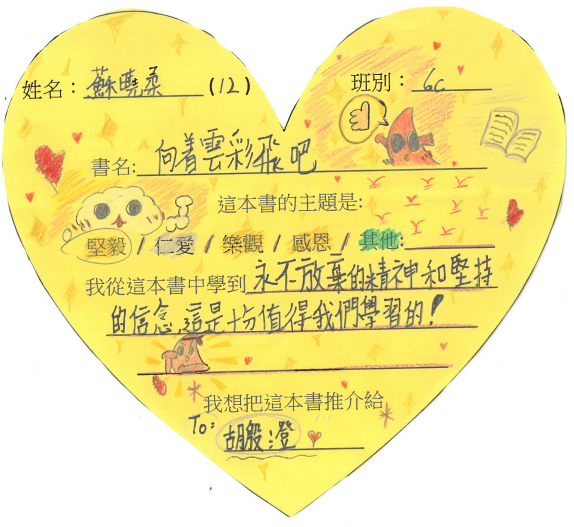 姓名：蘇曉柔 (12) 班別：6C
書名：向着雲彩飛吧
這本書的主題是:
堅毅 / 仁愛 / 樂觀 / 感恩 / 其他:
我從這本書中學到永不放棄的精神和堅持
的信念,這是十分值得我們學習的!
我想把這本書推介給
To: 胡殷澄